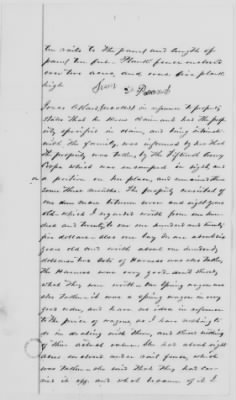 ten rails to the panel and length of
panel ten feet. Plank fence enclosed
over two acres, and was five plank
high.
Sworn
in reference to property
states that he knew claimant had the
property specified in claim, and being intimate
with the family, was informed by her that
the property was taken by the Fifteenth Army
Corps which was encamped in sight and
a portion on her place, and remained there
some three months. The property consisted of
one dun mare between seven and eight years
old which I regarded worth from one hun
dred and twenty to one hundred and twenty
five dollars. Also one bay mare about six
years old and worth about one hundred
dollars two sets of Harness was also taken,
The Harness was very good dont know
what they were worth. One Spring wagon was
also taken it was a spring wagon in very
good order, and have no idea in reference
to the price of wagons, as I have nothing to
do in dealing with them, and know nothing
of their actual value. She had about eight
acres enclosed under rail fence, which
was taken. She said that they had car
ried it off and what became of it I